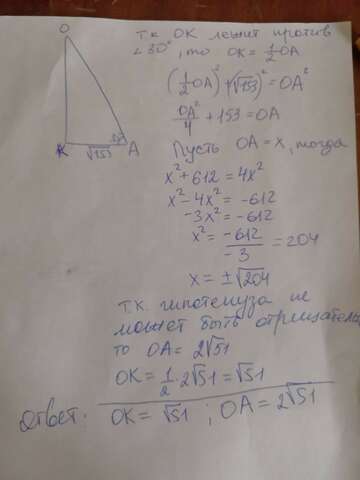 O
K
√153
30°
A
т.к OK лежит против
∠30°, то OK = 1/2 OA
(1/2 OA)² + (√153)² = OA²
OA²/4 + 153 = OA
Пусть OA = x, тогда
x² + 612 = 4x²
x² - 4x² = -612
-3x² = -612
x² = -612/-3 = 204
x = ±√204
т.к. гипотенуза не
может быть отрицател
то OA = 2√51
OK = 1/2 · 2√51 = √51
Ответ: OK = √51 ; OA = 2√51